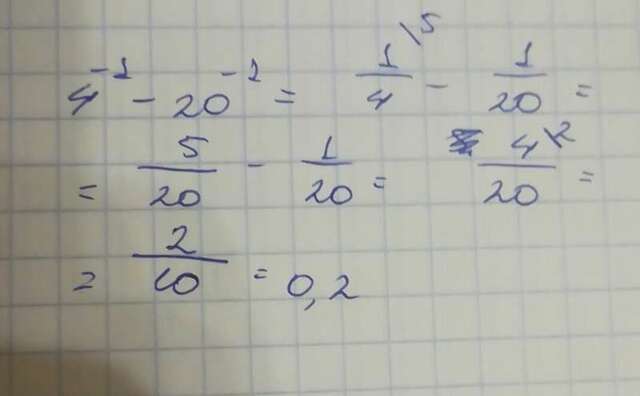 4⁻¹ - 20⁻¹ = 1\5/4 - 1/20 =
= 5/20 - 1/20 = 4\2/20 =
= 2/10 = 0,2